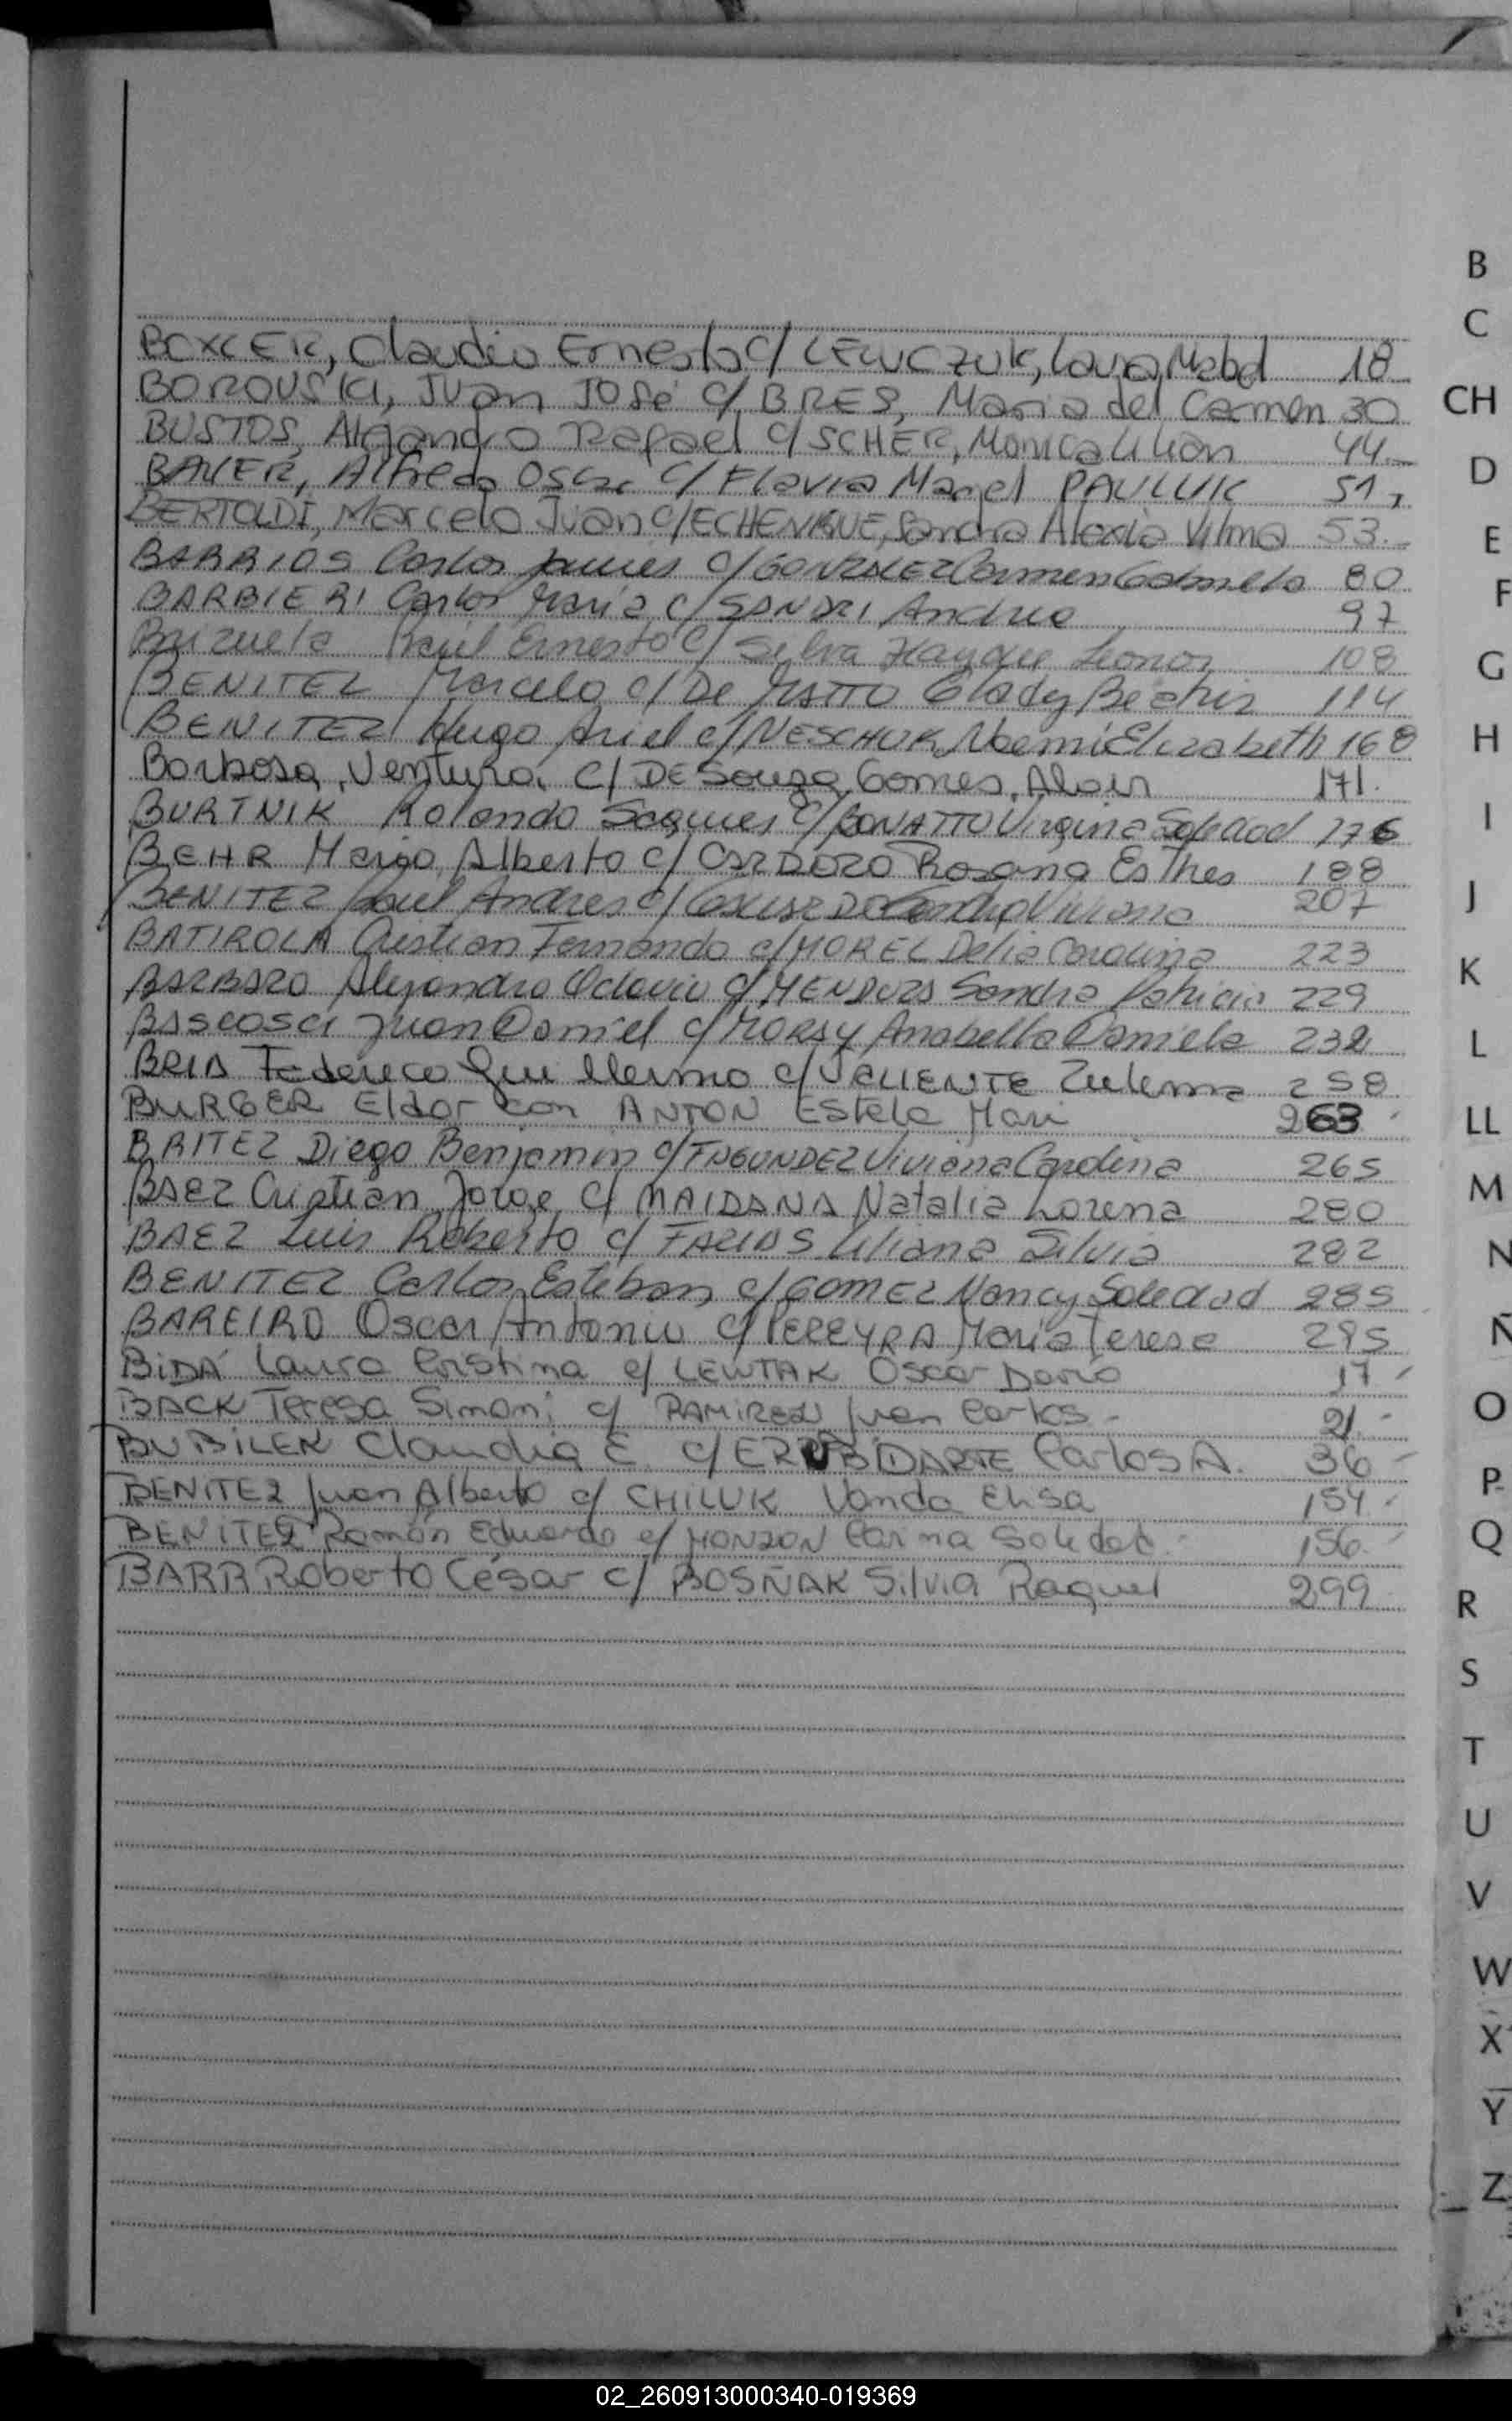 BOXLER, Claudio Ernesto c/ LEWCZUK, Laura Mabel 18
BOROUSKI, JUan JOSé c/ BRES, Maria del Carmen 30
BUSTOS, Alejandro Rafael c/ SCHER, Monica Lilian 44
BAUER, Alfredo Oscar c/ Flavia Mariel PAULUK 51
BERTOLDI, Marcelo Juan c/ ECHENIQUE, Sandra Alecia Vilma 53
BARRIOS Carlos c/ GONZALEZ Carmen Gabriela 80
BARBIERI Carlos Maria c/ SANDRI Andrea 97
Brizuela Raúl Ernesto c/ Silva Haydee Leonor 108
BENITEZ Marcelo c/ De MATTO Glady Beatriz 114
BENITEZ Hugo Ariel c/ NESCHUK Noemi Elizabeth 168
Barbosa, Ventura, C/ DE Souza Gomes, 171.
BURTNIK Rolando c/ BONATTO Virginia Soledad 176
BEHR Alberto c/ CARDOZO Rosana Esther 188
BENITEZ Raul Andres c/ Viviana 207
BATIROLA Cristian Fernando c/ MOREL Delia Carolina 223
BARBARO Alejandro Octavio c/ MENDOZA Sandra Patricia 229
Juan Daniel c/ Anabella Daniela 232
BRIA Federico Guillermo c/ VALIENTE Zulema 258
BURGER Eldor con ANTON Estela Mari 263
BRITEZ Diego Benjamin c/ FAGUNDEZ Viviana Carolina 265
BAEZ Cristian Jorge C/ MAIDANA Natalia Lorena 280
BAEZ Luis Roberto c/ FARIAS Liliana Silvia 282
BENITEZ Carlos Esteban c/ GOMEZ Nancy Soledad 285
BAREIRO Oscar Antonio c/ PEREYRA Maria Teresa 295
BiDÁ Laura Cristina c/ LEWTAK Oscar Dario 17
BACK Teresa Simoni c/ RAMIREZ Juan Carlos 21
BUBILEK Claudia E. c/ ERRUBIDARTE Carlos A. 36
BENITEZ Juan Alberto c/ CHILUK Vanda Elisa 154
BENITEZ Román Eduardo c/ MONZON Carina Soledad 156
BARR Roberto César c/ BOSÑAK Silvia Raquel 299
B
C
CH
D
E
F
G
H
I
J
K
L
LL
M
N
Ñ
O
P
Q
R
S
T
U
V
W
X
Y
Z
02_260913000340-019369